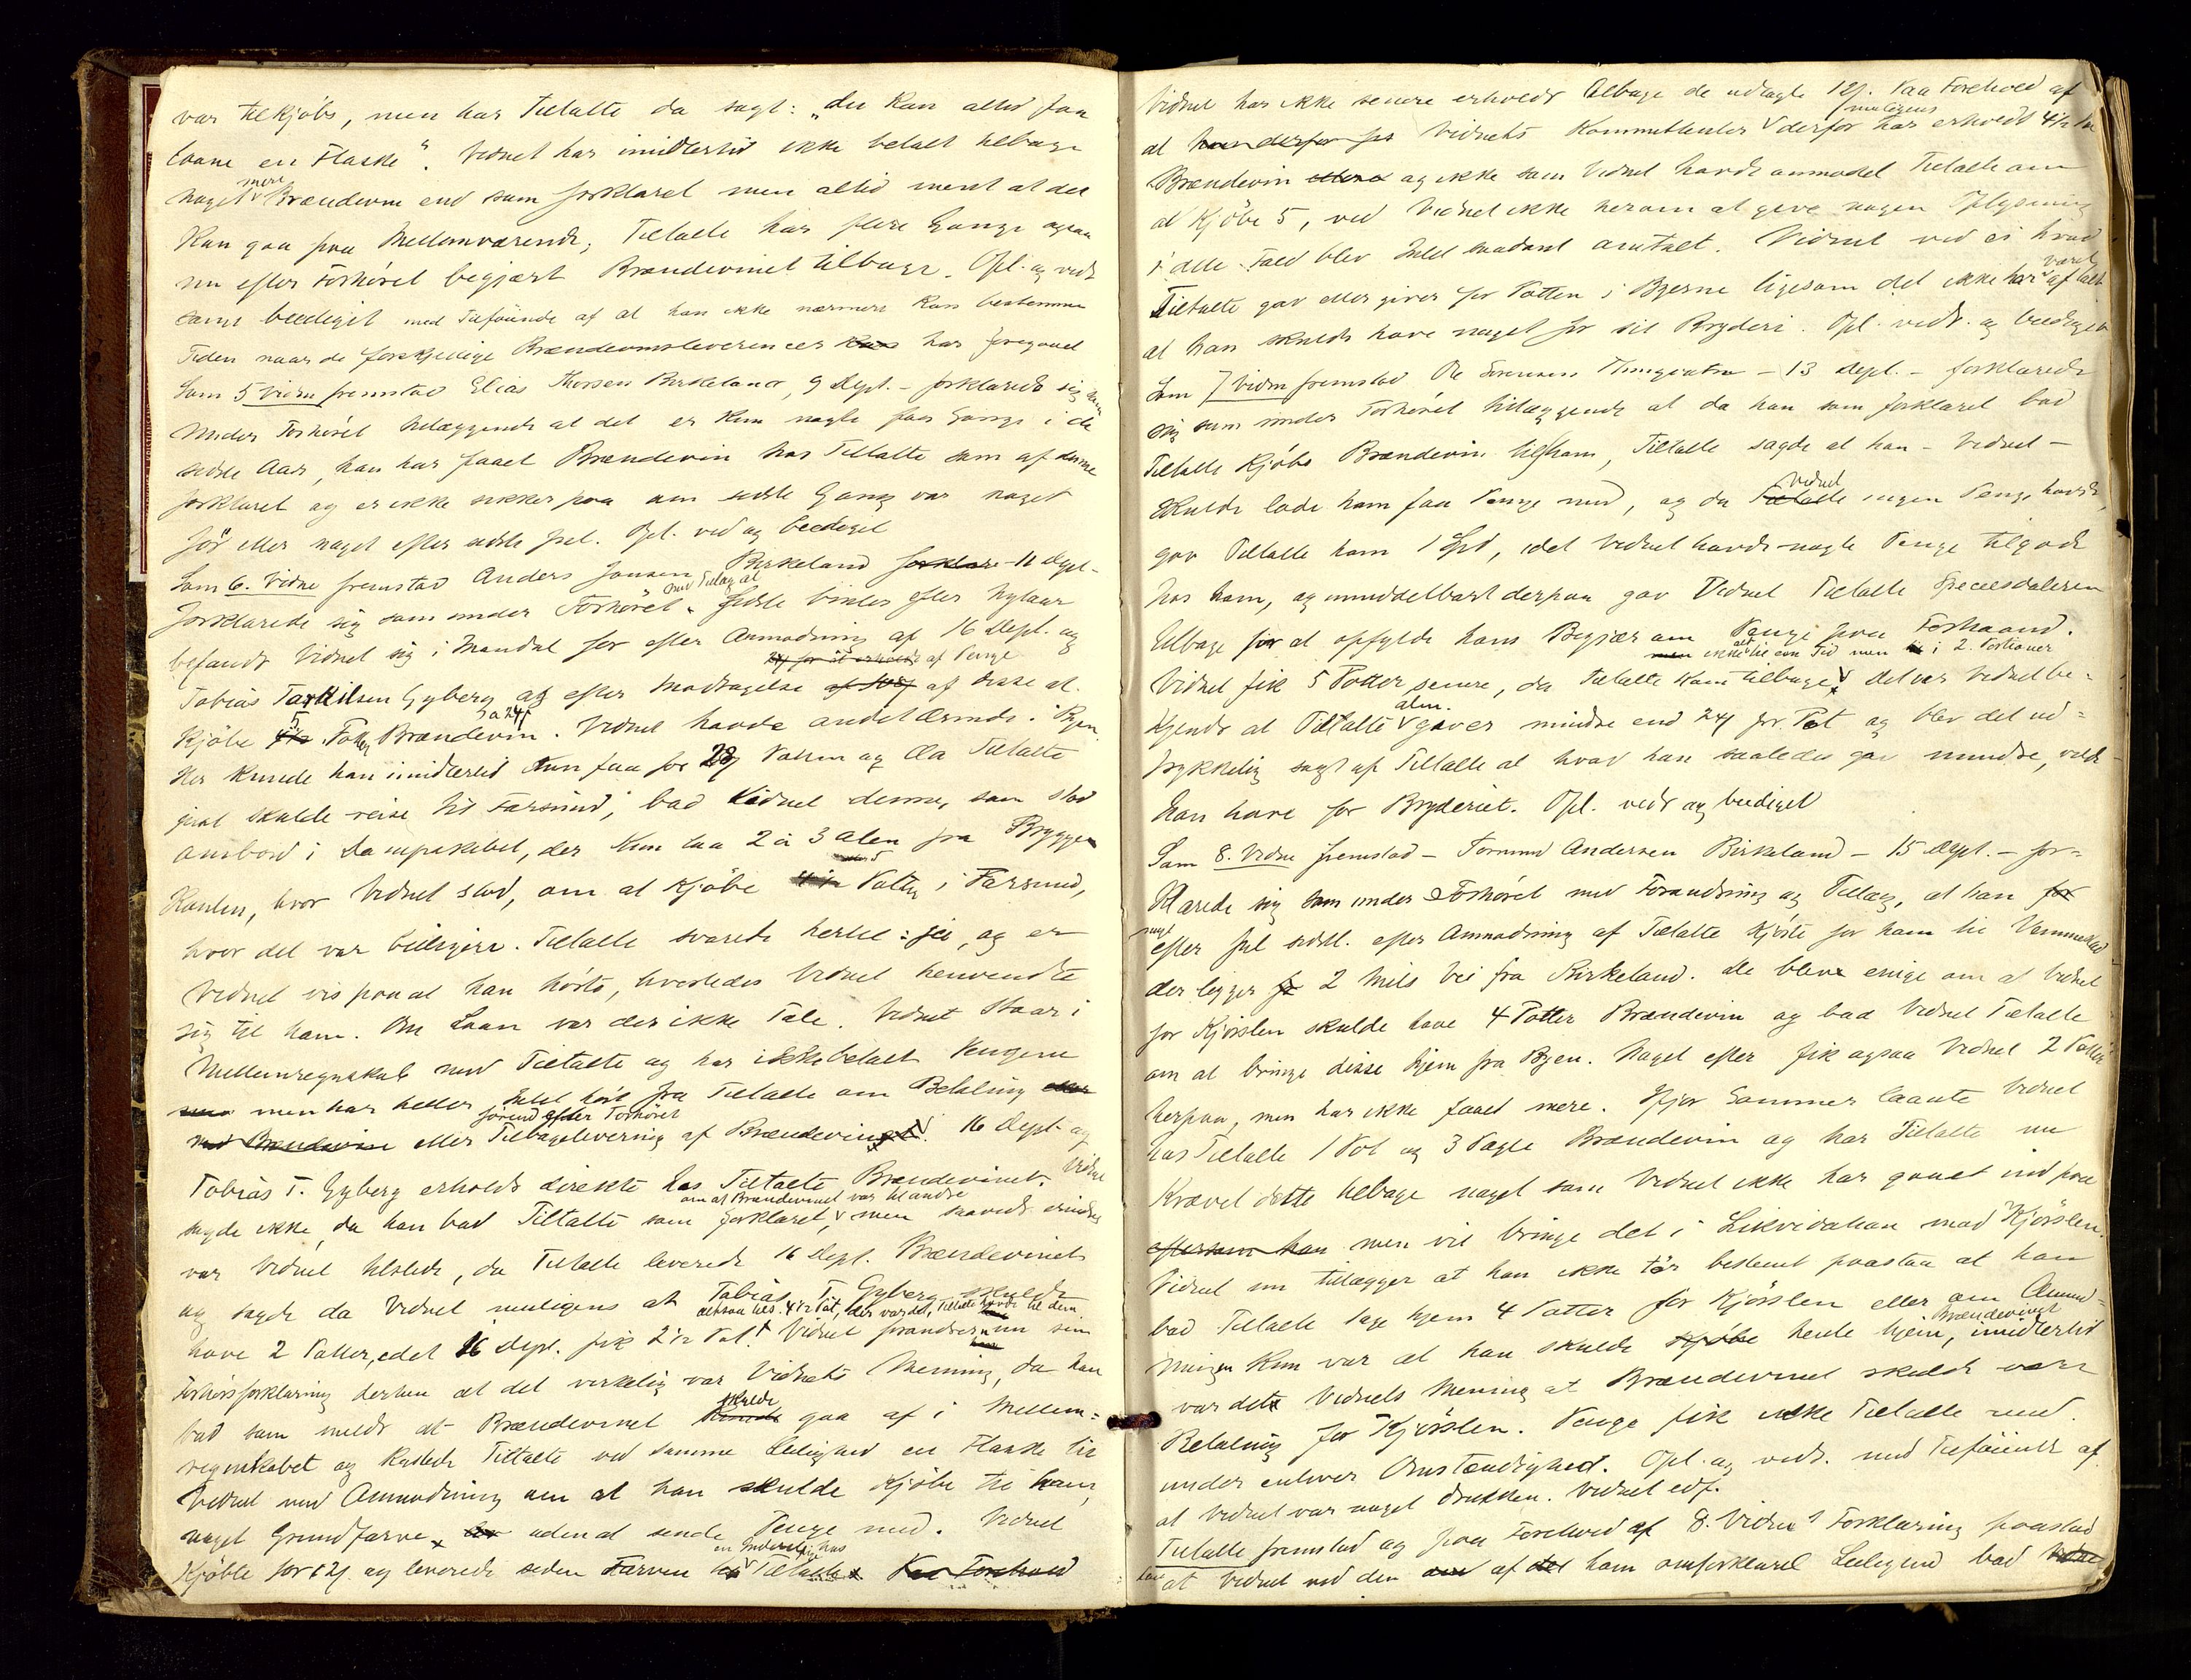 var tilkjøbs, men har Tiltalte da sagt: „du kan altid faa
laane en Flaske“. Vidnet har imidlertid ikke betalt tilbage
noget mere Brændeviin end som forklaret men altid ment at det
kan gaa paa Mellemværende; Tiltalte har flere Gange ogsaa
nu efter Forhöret begjært Brændevinet tilbage. Opl. og vedt.
samt beediget med Tilföiende af at han ikke nærmere kan bestemme
Tiden naar de forskjellige Brændevinsleverencer har foregaaet
Som 5 Vidne fremstod Elias Thorsen Birkeland, 9 Dept. – forklarede sig som
under Forhöret tillæggende at det er kun nogle faa Gange i de
sidste Aar, han har faaet Brændevin hos Tiltalte som af denne
forklaret og er ikke sikker paa om sidste Gang var noget
för eller noget efter sidste Jul. Opl. ved og beediget
Som 6. Vidne fremstod Anders Jonsen Birkeland forklare – 11 Dept. –
forklarede sig som under Forhöret med Tillæg at sidste Vinter efter Nytaar
befandt Vidnet sig i Mandal for efter Anmodning af 16 Dept. og
Tobias Tarkilsen Gyberg og efter Modtagelse af Penge af disse at
kjöbe 5 Potter Brændevin à 24 ſ. Vidnet havde andet Ærende i Byen.
Her kunde han imidlertid kun faa for 28 ſ Potten og da Tiltalte
just skulde reise til Farsund, bad Vidnet denne, som stod
ombord i Dampskibet, der kun laa 2 à 3 Alen fra Brygge
Kanten, hvor Vidnet stod, om at kjöbe Potter i Farsund,
hvor det var billigere. Tiltalte svarede hertil: jei, og er
Vidnet vis paa at han hörte, hvorledes Vidnet henvendte
sig til ham. Om Laan var der ikke Tale. Vidnet staar i
Mellemregnskab med Tiltalte og har ikke betalt Pengene
men har heller intet hört fra Tiltalte om Betaling eller
med Brændeviin eller Tilbagelevering af Brændevinet förend efter Forhöret. 16 Dept. og
Tobias T. Gyberg erholdt direkte hos Tiltalte Brændevinet. Vidnet
sagde ikke, da han bad Tiltalte som forklaret, om at Brændevinet var til andre men saavidt erindres
var Vidnet tilstede, da Tiltalte leverede 16 Dept. Brændevinet
og sagde da Vidnet muligens at Tobias T. Gyberg skulde
have 2 Potter, idet 16 Dept. fik 2½ Pot, altsaa tils. 4½ Pot, der var det, Tiltalte havde til dem. Vidnet forandrer nu sin
Forhörsforklaring derhen at det virkelig var Vidnets Mening, da han
bad som meldt at Brændevinet skulde gaa af i Mellem=
regnskabet og kastede Tiltalte ved samme Leilighed en Flaske til
Vidnet med Anmodning om at han skulde kjöbe til ham
noget Grundfarve uden at sende Penge med. Vidnet
kjöbte for 12 ſ. og leverede siden Farven til en Inderst hos Tiltalte. Paa Forehold
Vidnet har ikke senere erholdt tilbage de udlagte 12 ſ. Paa Forehold af
at Vidnets Kommittenter muligens derfor har erholdt 4½ Pot
Brændevin og ikke som Vidnet havde anmodet Tiltalte om
at kjöbe 5, ved Vidnet ikke herom at give nogen Oplysning
i dette Fald blev intet saadant omtalt. Vidnet ved ei hvad
Tiltalte gav eller giver for Potten i Byerne ligesom det ikke har været aftalt
at han skulde have noget for sit Bryderi. Opl. vedt. og beediget
Som 7 Vidne fremstod Ole Sörensen – 13 Dept. – forklarede
sig som under Forhöret tillæggende at da han som forklaret bad
Tiltalte kjöbe Brændevin til ham, Tiltalte sagde at han – Vidnet –
skulde lade ham faa Penge med, og da Vidnet ingen Penge havde,
gav Tiltalte ham 1 Spd, idet Vidnet havde nogle Penge tilgode
hos ham, og umiddelbart derpaa gav Vidnet Tiltalte Speciesdaleren
tilbage for at opfylde hans Begjær om Penge paa Forhaand.
Vidnet fik 5 Potter senere, da Tiltalte kom tilbage ikke alt til een Tid men i 2 Portioner. Det var Vidnet be=
kjendt at Tiltalte alm. gaver mindre end 24 ſ pr. Pot og blev det ud=
trykkelig sagt af Tiltalte at hvad han saaledes gav mindre, vilde
han have for Bryderiet. Opl. vedt og beediget
Som 8. Vidne fremstod – Tormod Andersen Birkeland – 15 Dept. – for=
klarede sig som under Forhöret med Forandring og Tillæg, at han
noget efter Jul sidstl. efter Anmodning af Tiltalte kjörte for ham til Vemmestad
der ligger 2 Mils Vei fra Birkeland. De bleve enige om at Vidnet
for Kjörslen skulde have 4 Potter Brændevin og bad Vidnet Tiltalte
om at bringe disse hjem fra Byen. Noget efter fik ogsaa Vidnet 2 Potter
herpaa, men har ikke faaet mere. Ifjor Sommer laante Vidnet
hos Tiltalte 1 Pot og 3 Pægle Brændevin og har Tiltalte nu
krævet dette tilbage noget som Vidnet ikke har gaaet ind paa
eftersom han men vil bringe det i Likvidation mod Kjörslen.
Vidnet nu tillægger at han ikke tör bestemt paastaa at han
bad Tiltalte tage hjem 4 Potter for Kjörslen eller om Anmod=
ningen kun var at han skulde hente hjem Brændevinet, imidlertid
var det Vidnets Mening at Brændevinet skulde være
Betaling for Kjörslen. Penge fik ikke Tiltalte med
under enhver Omstændighed. Opl. og vedt. med Tilföiende af
at Vidnet var noget drukken. Vidnet edf.
Tiltalte fremstod og paa Forehold af 8. Vidnes Forklaring paastod
at Vidnet ved den af ham omforklaret Leilighed bad